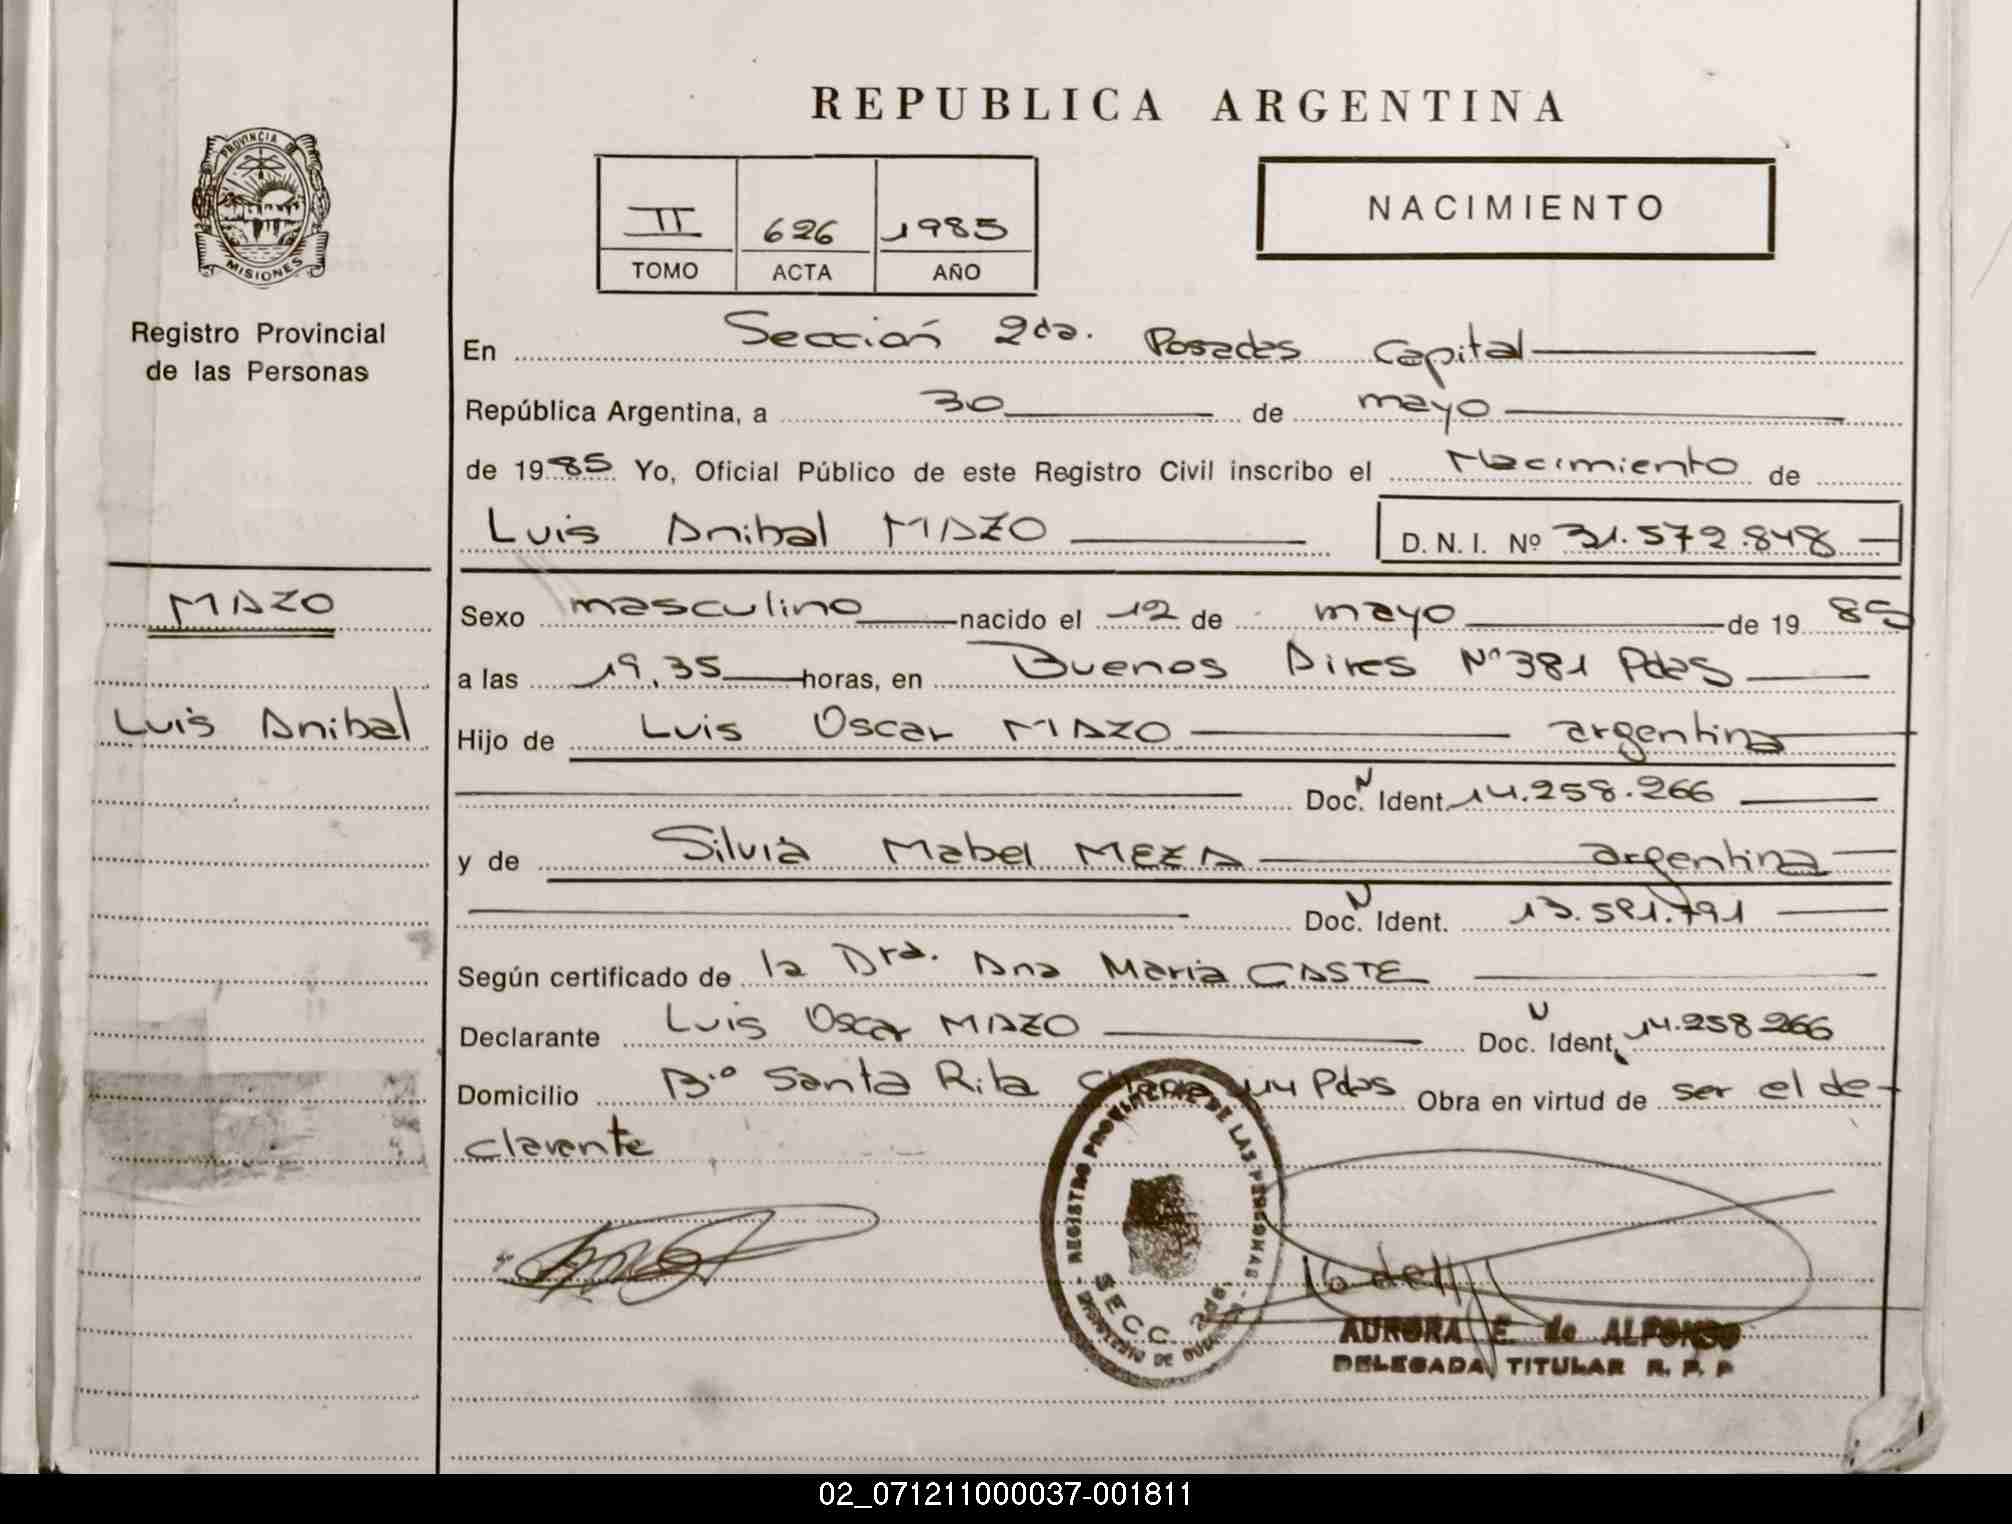 REPUBLICA ARGENTINA
PROVINCIA DE
MISIONES
Registro Provincial
de las Personas
II 626 1985
TOMO ACTA AÑO
NACIMIENTO
En Sección 2da. Posadas Capital
República Argentina, a 30 de mayo
de 1985 Yo, Oficial Público de este Registro Civil inscribo el Nacimiento de
Luis Anibal MAZO D. N. I. Nº 31.572.848
MAZO
Luis Anibal
Sexo masculino nacido el 12 de mayo de 1985
a las 19,35 horas, en Buenos Aires Nº 381 Pdas
Hijo de Luis Oscar MAZO argentina
Doc. N Ident. 14.258.266
y de Silvia Mabel MEZA argentina
Doc. N Ident. 13.591.791
Según certificado de la Dra. Ana Maria CASTE
Declarante Luis Oscar MAZO Doc. N Ident. 14.258.266
Domicilio Bº Santa Rita 44 Pdas Obra en virtud de ser el de-
clarante
REGISTRO PROVINCIAL DE LAS PERSONAS
SECC.
AURORA E. de ALFONSO
DELEGADA TITULAR R. P. P
02_071211000037-001811